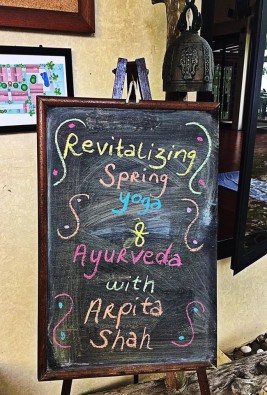 Revitalizing
Spring
yoga
&
Ayurveda
with
Arpita
Shah